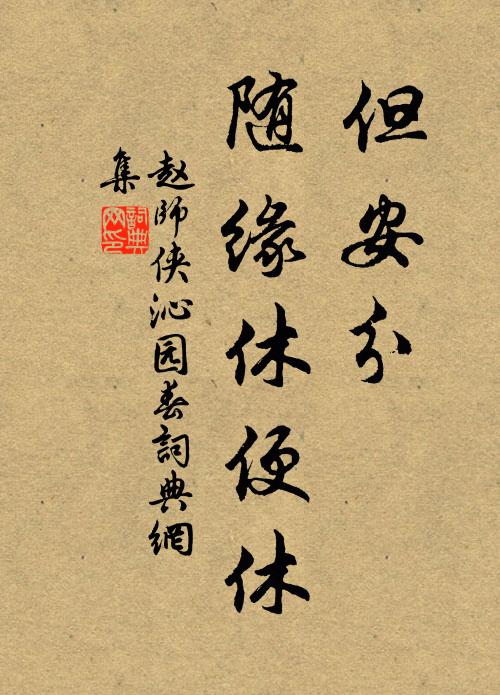 但安分
随缘休便休
赵師侠沁园春詞典網
集
詞典网印